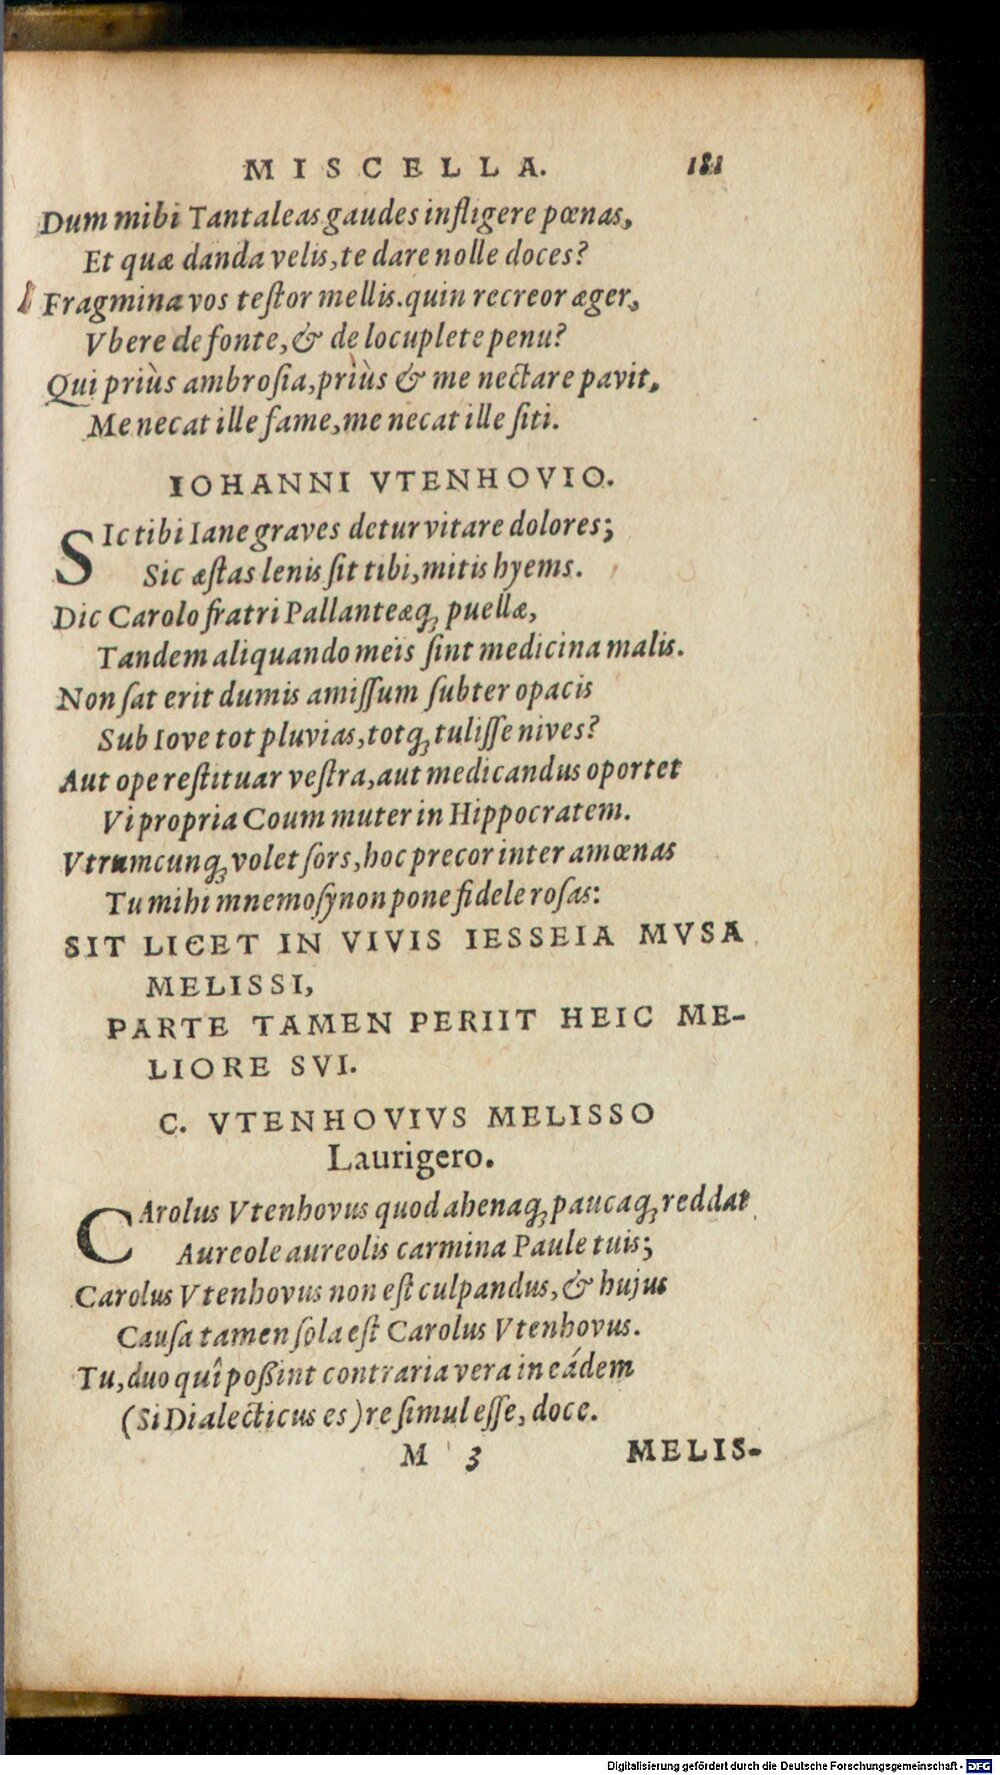 MISCELLA. 181
Dum mihi Tantaleas gaudes infligere pœnas,
Et quæ danda velis, te dare nolle doces?
Fragmina vos teſtor mellis. quin recreor æger,
Vbere de fonte, & de locuplete penu?
Qui priùs ambroſia, priùs & me nectare pavit,
Me necat ille fame, me necat ille ſiti.
IOHANNI VTENHOVIO.
SIc tibi Iane graves detur vitare dolores;
Sic æſtas lenis ſit tibi, mitis hyems.
Dic Carolo fratri Pallanteæq; puellæ,
Tandem aliquando meis ſint medicina malis.
Non ſat erit dumis amiſſum ſubter opacis
Sub Iove tot pluvias, totq; tuliſſe nives?
Aut ope reſtituar veſtra, aut medicandus oportet
Vi propria Coum muter in Hippocratem.
Vtrumcunq; volet ſors, hoc precor inter amœnas
Tu mihi mnemoſynon pone fidele roſas:
SIT LICET IN VIVIS IESSEIA MVSA
MELISSI,
PARTE TAMEN PERIIT HEIC ME-
LIORE SVI.
C. VTENHOVIVS MELISSO
Laurigero.
CArolus Vtenhovus quod ahenaq; paucaq; reddat
Aureole aureolis carmina Paule tuis;
Carolus Vtenhovus non eſt culpandus, & hujus
Cauſa tamen ſola eſt Carolus Vtenhovus.
Tu, duo quî poßint contraria vera in eádem
(Si Dialecticus es) re ſimul eſſe, doce.
M 3 MELIS-
Digitalisierung gefördert durch die Deutsche Forschungsgemeinschaft - DFG